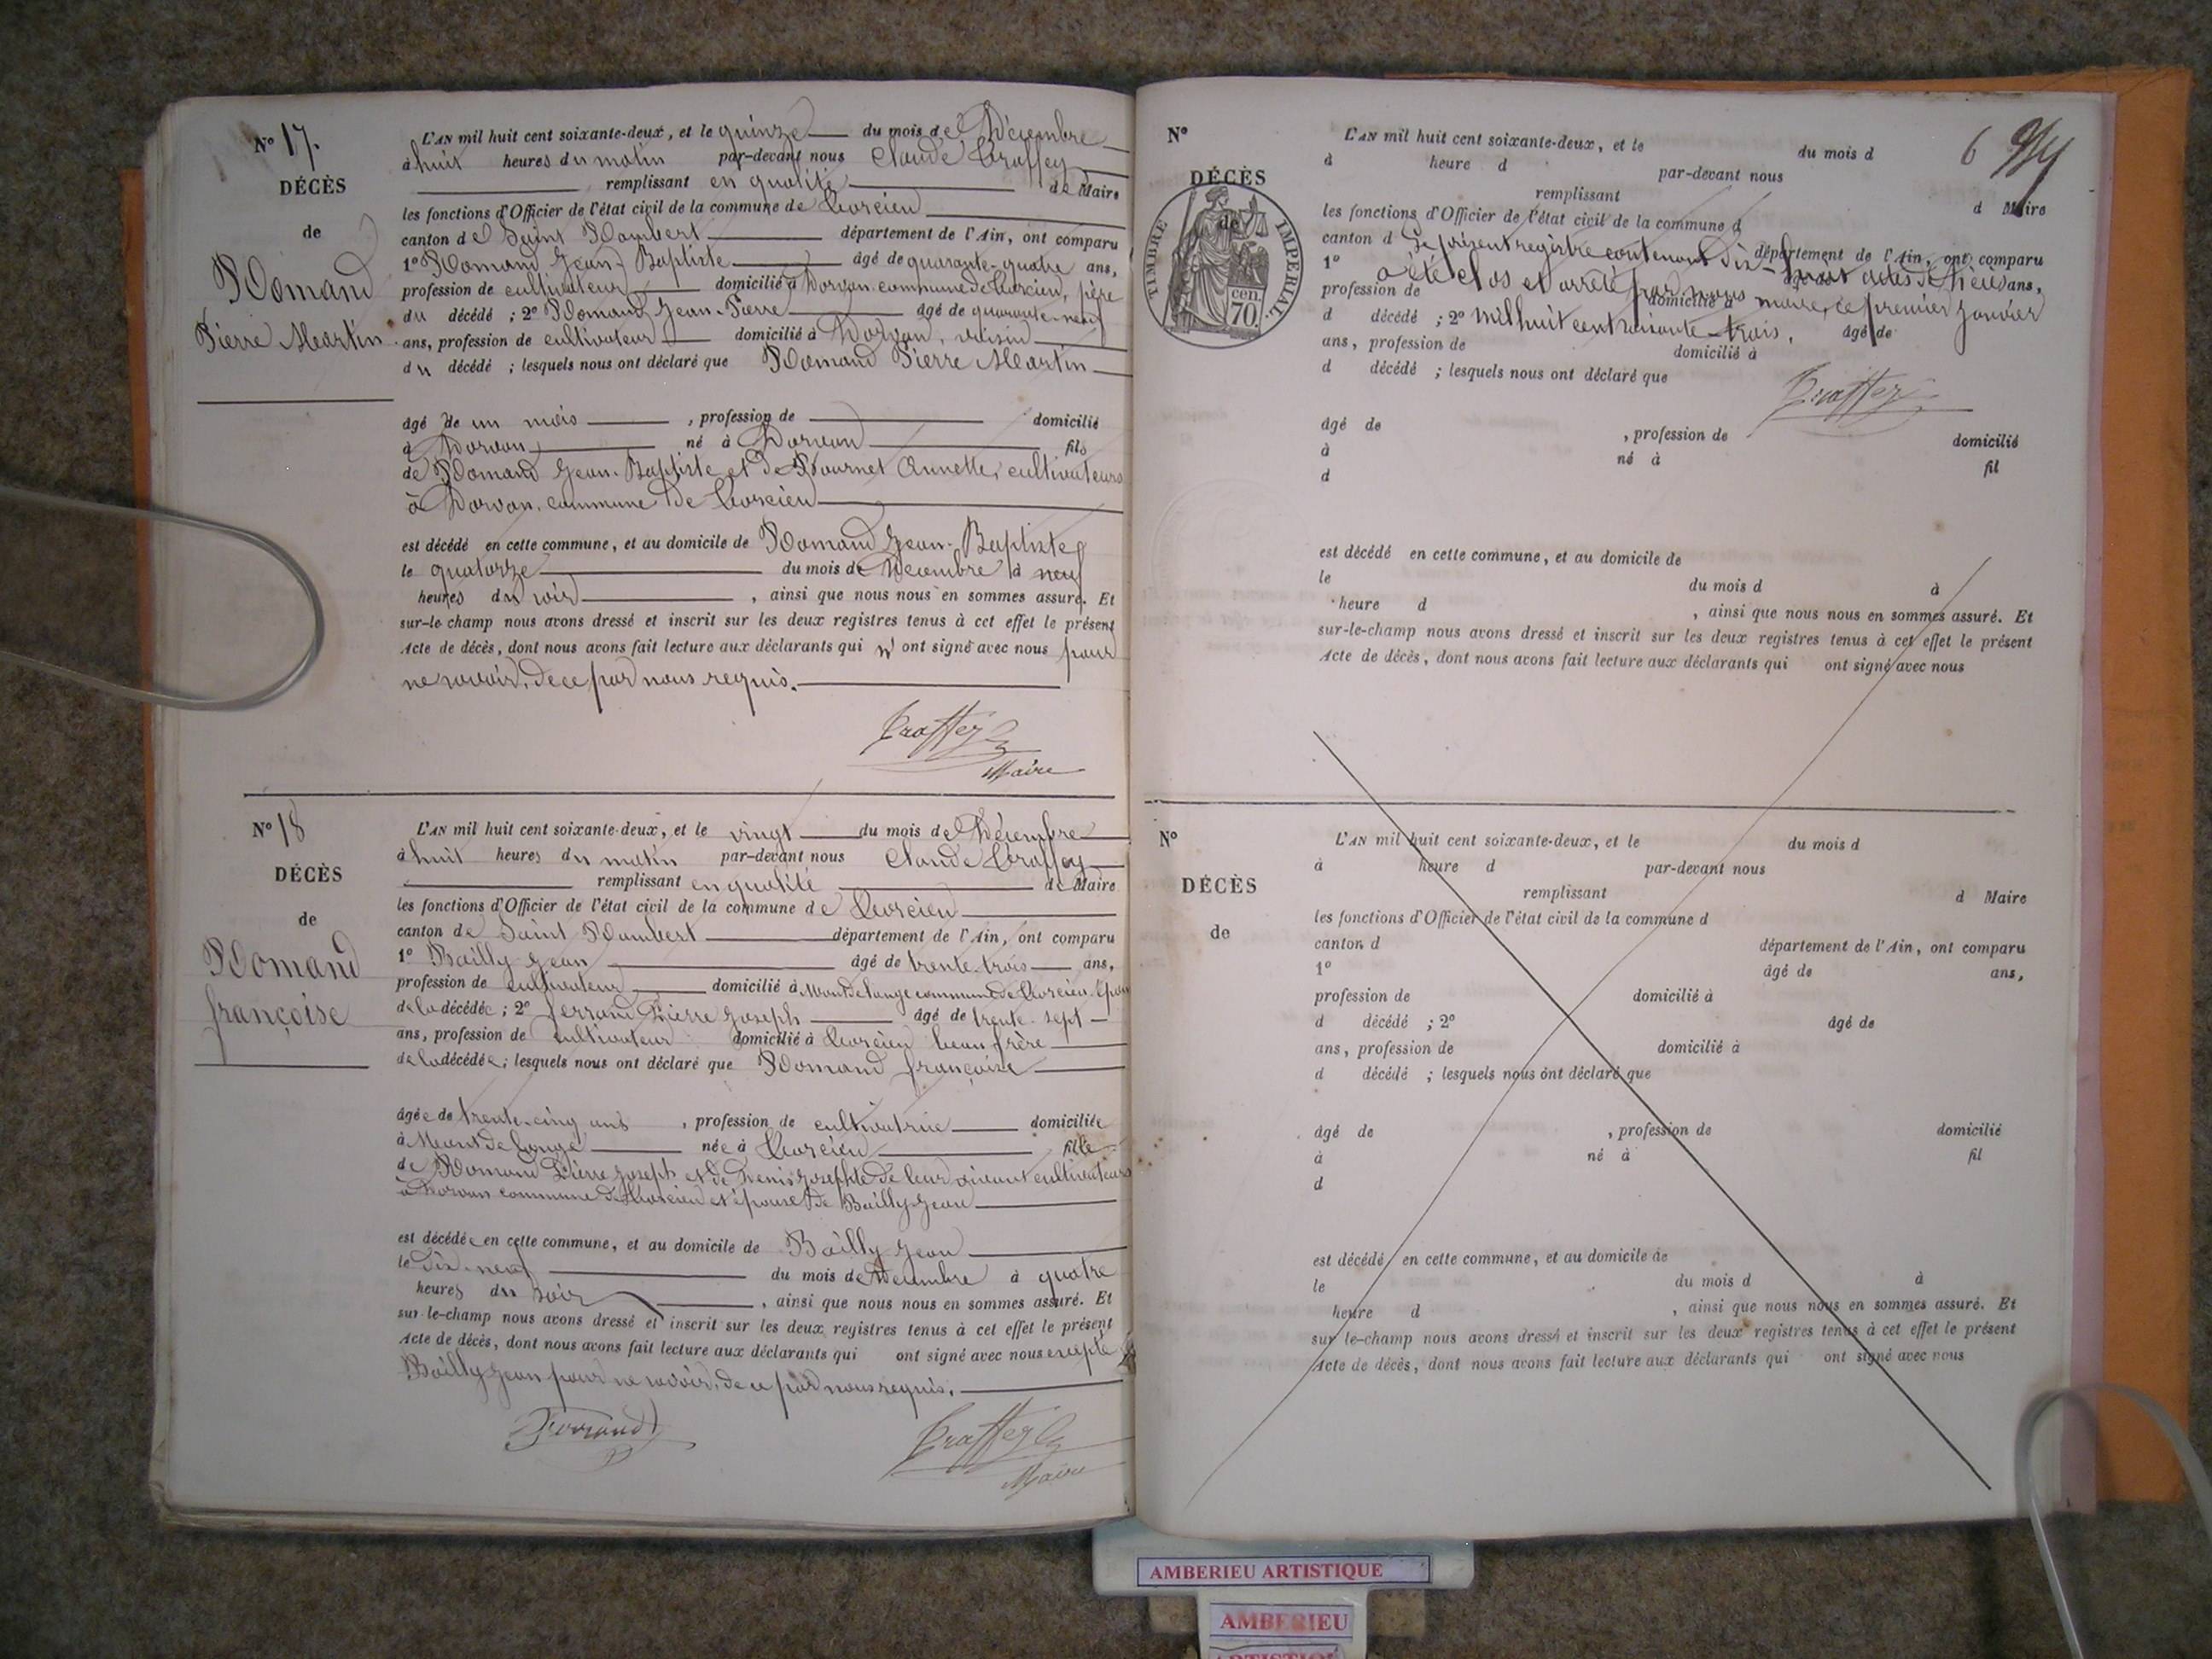 N° 17.
DÉCÈS
de
Romand
Pierre Martin
L'AN mil huit cent soixante-deux, et le quinze du mois de Décembre
à huit heures du matin par-devant nous Claude
remplissant en qualité de Maire
les fonctions d'Officier de l'état civil de la commune de Torcieu
canton de Saint Rambert département de l'Ain, ont comparu
1° Romand Jean-Baptiste âgé de quarante-quatre ans,
profession de cultivateur domicilié à Dorvan commune de Torcieu, père
du décédé ; 2° Romand Jean-Pierre âgé de quarante-neuf
ans, profession de cultivateur domicilié à Dorvan, voisin
du décédé ; lesquels nous ont déclaré que Romand Pierre Martin
âgé de un mois , profession de domicilié
à Dorvan né à Dorvan fils
de Romand Jean-Baptiste et de Annette, cultivateurs
à Dorvan, commune de Torcieu
est décédé en cette commune, et au domicile de Romand Jean-Baptiste
le quatorze du mois de Décembre à neuf
heures du soir , ainsi que nous nous en sommes assuré. Et
sur-le-champ nous avons dressé et inscrit sur les deux registres tenus à cet effet le présent
Acte de décès, dont nous avons fait lecture aux déclarants qui n'ont signé avec nous pour
ne savoir, de ce par nous requis.
Maire
N° 18
DÉCÈS
de
Romand
françoise
L'AN mil huit cent soixante-deux, et le vingt du mois de Décembre
à huit heures du matin par-devant nous Claude
remplissant en qualité de Maire
les fonctions d'Officier de l'état civil de la commune de Torcieu
canton de Saint Rambert département de l'Ain, ont comparu
1° Bailly Jean âgé de trente-trois ans,
profession de cultivateur domicilié à Mont de lange commune de Torcieu, époux
de la décédée ; 2° ferrand Pierre Joseph âgé de trente-sept
ans, profession de cultivateur domicilié à Torcieu beau-frère
de la décédée ; lesquels nous ont déclaré que Romand françoise
âgée de trente-cinq ans , profession de cultivatrice domiciliée
à Mont de lange née à Torcieu fille
de Romand Pierre Joseph et de Denis Josephte de leur vivant cultivateurs
à Dorvan commune de Torcieu et épouse de Bailly Jean
est décédée en cette commune, et au domicile de Bailly Jean
le dix-neuf du mois de Décembre à quatre
heures du soir , ainsi que nous nous en sommes assuré. Et
sur-le-champ nous avons dressé et inscrit sur les deux registres tenus à cet effet le présent
Acte de décès, dont nous avons fait lecture aux déclarants qui ont signé avec nous excepté
Bailly Jean pour ne savoir, de ce par nous requis.
Ferrand
Maire
N°
DÉCÈS
de
TIMBRE IMPÉRIAL.
70 cen.
6
L'AN mil huit cent soixante-deux, et le du mois d
à heure d par-devant nous
remplissant d Maire
les fonctions d'Officier de l'état civil de la commune d
canton d département de l'Ain, ont comparu
Le présent registre contenant dix-huit actes de décès
1° âgé de ans,
a été clos et arrêté par nous maire, ce premier janvier
profession de domicilié à
mil huit cent soixante-trois.
d décédé ; 2° âgé de
ans, profession de domicilié à
d décédé ; lesquels nous ont déclaré que
âgé de , profession de domicilié
à né à fil
d
est décédé en cette commune, et au domicile de
le du mois d à
heure d , ainsi que nous nous en sommes assuré. Et
sur-le-champ nous avons dressé et inscrit sur les deux registres tenus à cet effet le présent
Acte de décès, dont nous avons fait lecture aux déclarants qui ont signé avec nous
N°
DÉCÈS
de
L'AN mil huit cent soixante-deux, et le du mois d
à heure d par-devant nous
remplissant d Maire
les fonctions d'Officier de l'état civil de la commune d
canton d département de l'Ain, ont comparu
1° âgé de ans,
profession de domicilié à
d décédé ; 2° âgé de
ans, profession de domicilié à
d décédé ; lesquels nous ont déclaré que
âgé de , profession de domicilié
à né à fil
d
est décédé en cette commune, et au domicile de
le du mois d à
heure d , ainsi que nous nous en sommes assuré. Et
sur le-champ nous avons dressé et inscrit sur les deux registres tenus à cet effet le présent
Acte de décès, dont nous avons fait lecture aux déclarants qui ont signé avec nous
AMBERIEU ARTISTIQUE
AMBERIEU
ARTISTIQUE